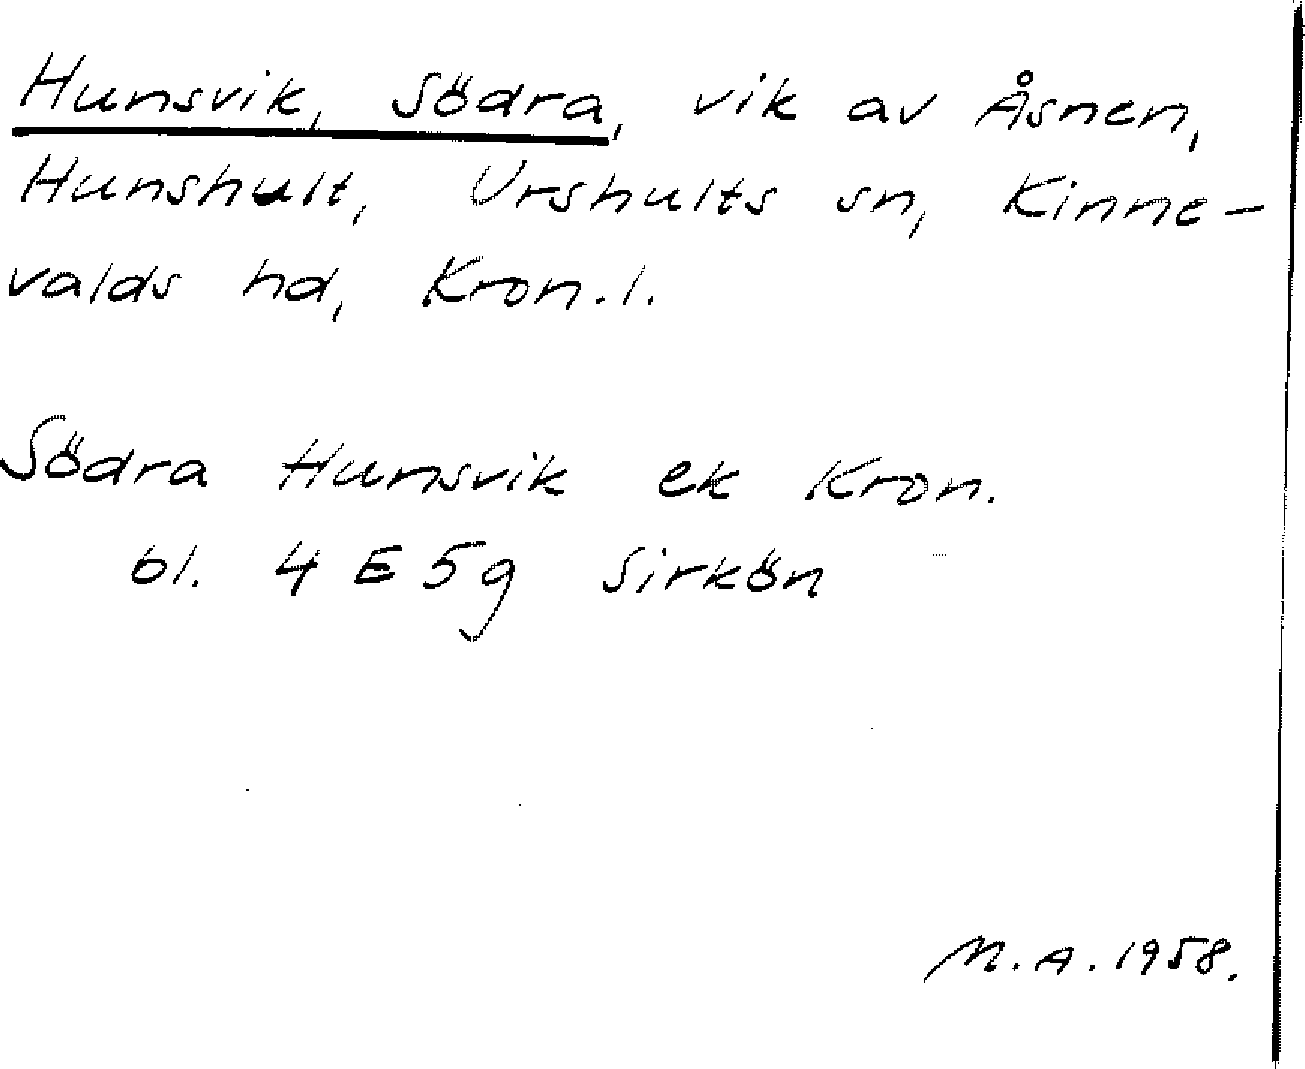 Hunsvik, Södra, vik av Åsnen,
Hunshult, Urshults sn, Kinne-
valds hd, Kron.l.
Södra Hunsvik ek Kron.
bl. 4 E 5g Sirkön
M.A. 1958.